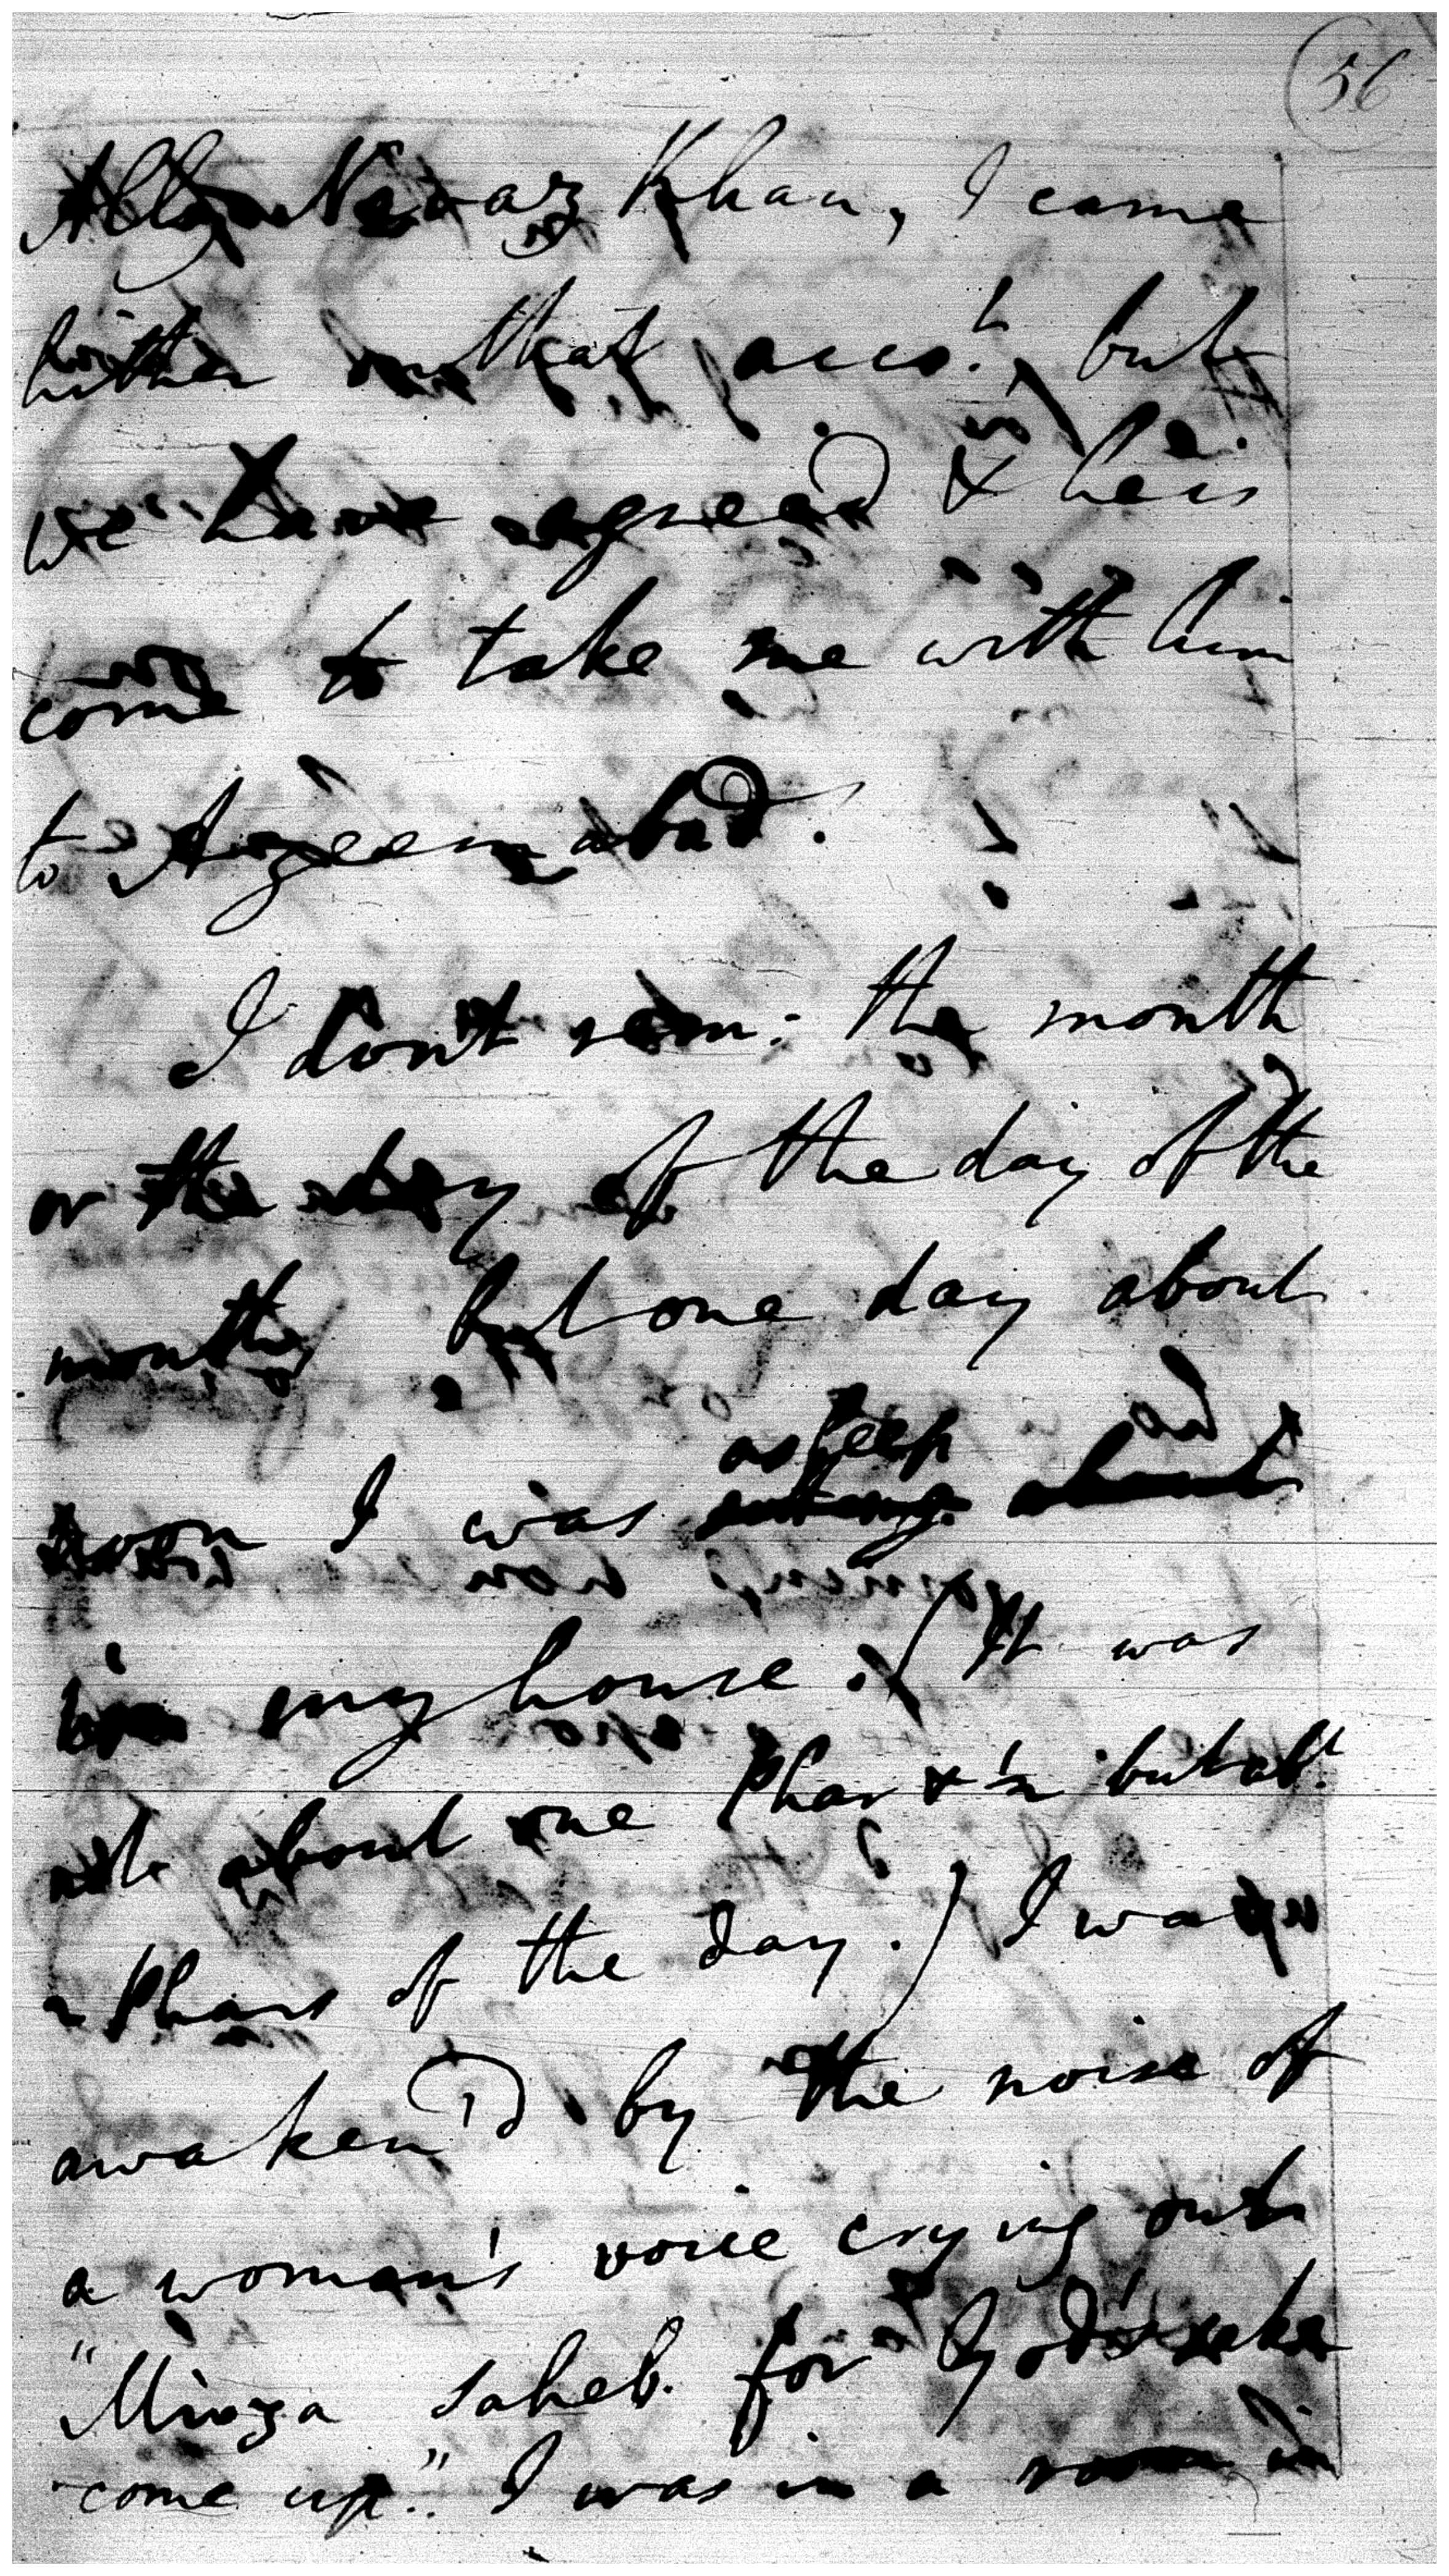 56
Ally Nawaz Khan, I came
hither on that acco.t, but
we have agreed & he is
come to take me with him
to Azeemabad.
I don't rem: the month
or the day of the day of the
month, but one day about
noon I was asleep
in my house. (It was
not about one Phar & ½ but abt.
2 Phars of the day.) I was
awaken'd by the noise of
a woman's voice crying out
"Mirza saheb. for God's sake
come up." I was in a room in